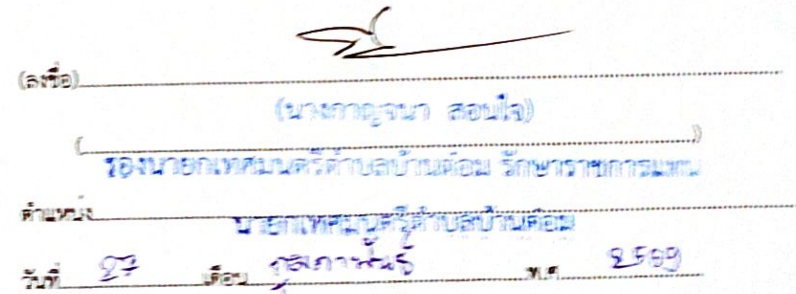 (ลงชื่อ)
(นางกาญจนา สอนใจ)
( )
รองนายกเทศมนตรีตำบลบ้านต๋อม รักษาราชการแทน
ตำแหน่ง
นายกเทศมนตรีตำบลบ้านต๋อม
วันที่ 27 เดือน กุมภาพันธ์ พ.ศ. 2569